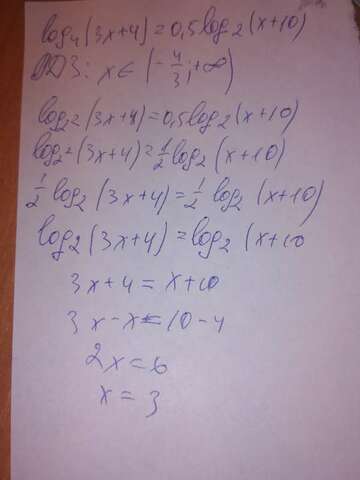 log₄(3x+4)=0,5log₂(x+10)
ОДЗ: x∈(-4/3;+∞)
log₂²(3x+4)=0,5log₂(x+10)
log₂²(3x+4)=1/2log₂(x+10)
1/2log₂(3x+4)=1/2log₂(x+10)
log₂(3x+4)=log₂(x+10
3x+4=x+10
3x-x=10-4
2x=6
x=3